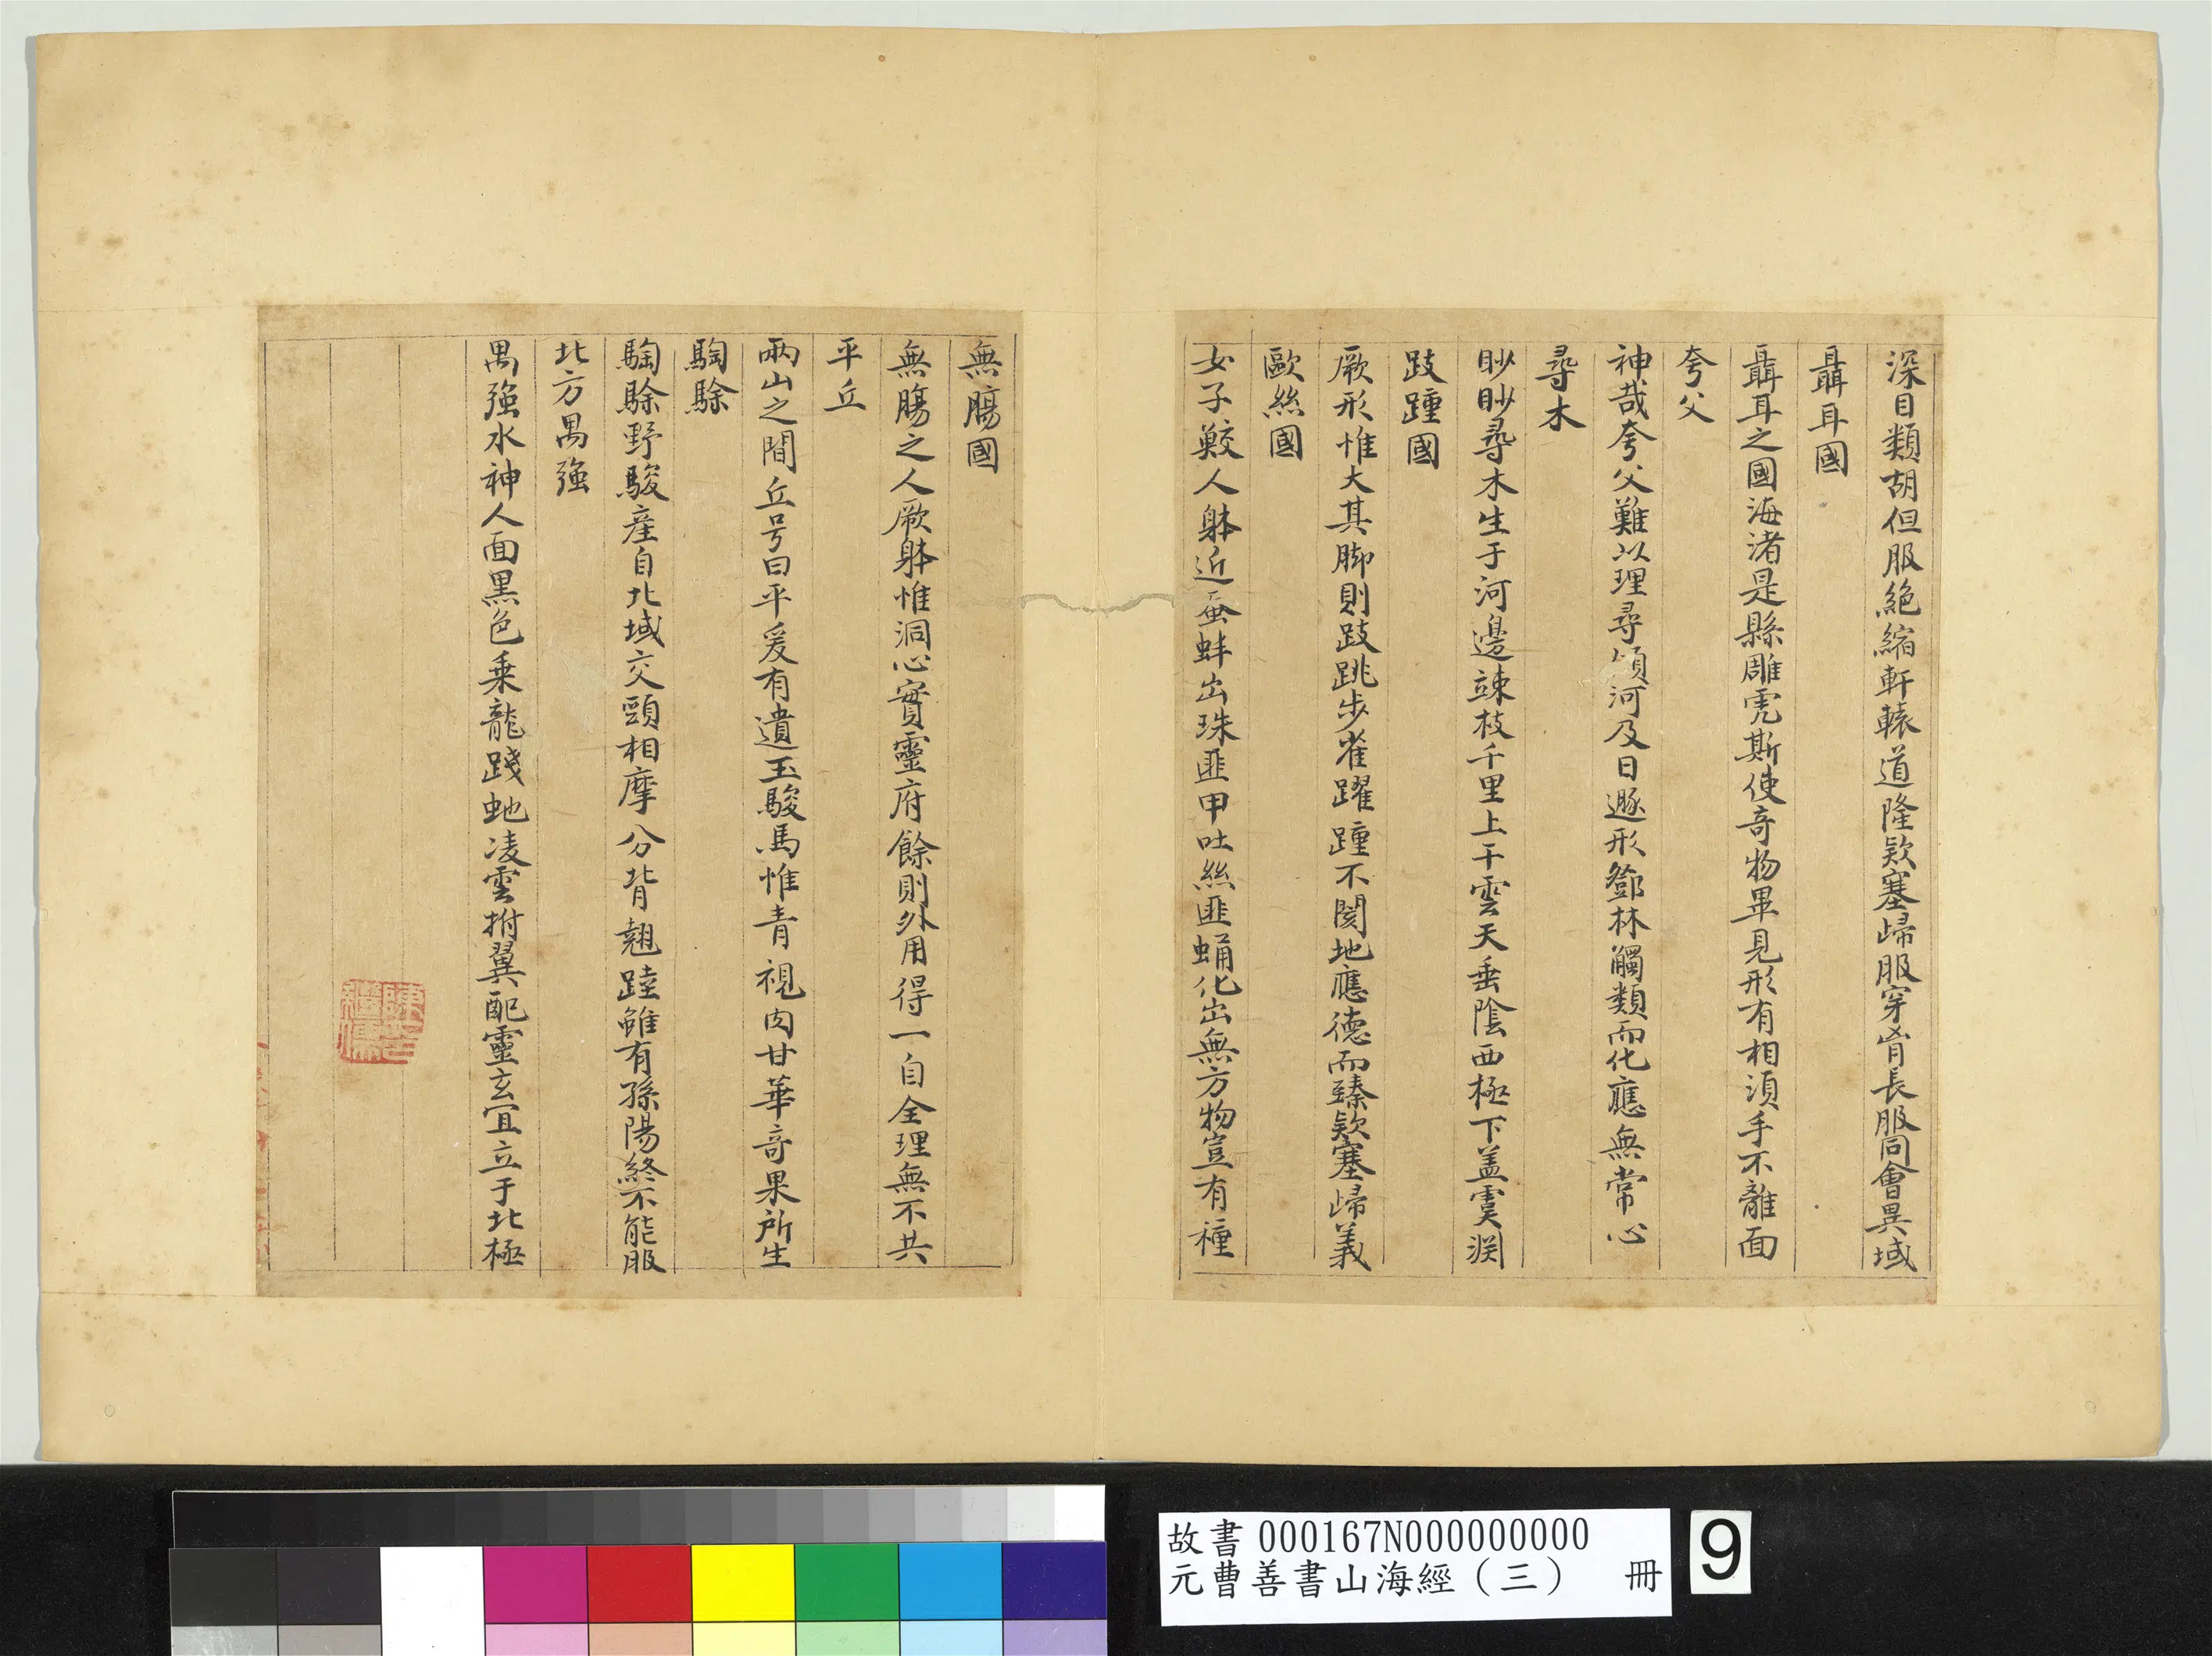 深目類胡但服絶縮軒轅道隆欵塞歸服穿胷長服同會異域
聶耳國
聶耳之國海渚是縣雕虎斯使奇物畢見形有相湏手不離面
夸父
神哉夸父難以理尋傾河及日遯形鄧林觸類而化應無常心
尋木
眇眇尋木生于河邊竦枝千里上干雲天垂隂西極下盖虞渕
跂踵國
厥形惟大其脚則跂跳步雀躍踵不閡地應德而臻欵塞歸義
歐絲國
女子鮫人躰近蚕蚌出珠匪甲吐絲匪蛹化出無方物豈有種
無膓國
無膓之人厥躰惟洞心實靈府餘則外用得一自全理無不共
平丘
兩山之間丘号曰平爰有遺玉駿馬惟青視肉甘華奇果所生
騊駼
騊駼野駿産自北域交頸相摩分背翹踛雖有孫陽終不能服
北方禺強
禺強水神人面黒色乗龍踐虵凌雲拊翼配靈玄冝立于北極
故書 000167N000000000
元曹善書山海經（三） 冊
9